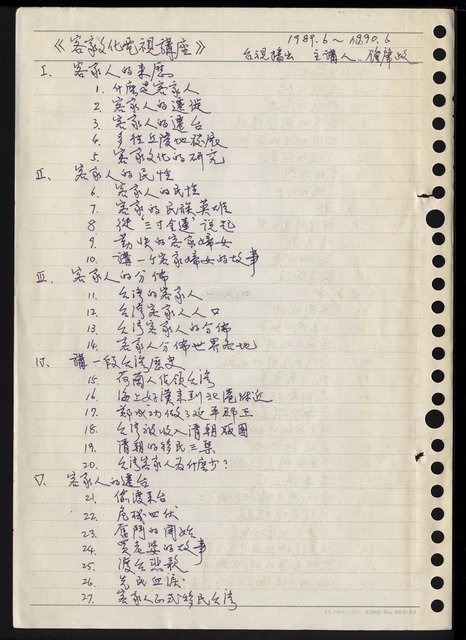 《客家文化電視講座》
1989.6～1990.6
台視播出 主講人：鍾肇政
I. 客家人的來歷
1. 什麼是客家人
2. 客家人的遷徙
3. 客家人的遷台
4. 多往丘陵地發展
5. 客家文化的研究
II. 客家人的民性
6. 客家人的民性
7. 客家的民族英雄
8 從"三寸金蓮"說起
9 勤快的客家婦女
10. 講一个客家婦女的故事
III. 客家人的分佈
11. 台湾的客家人
12. 台湾客家人人口
13. 台湾客家人的分佈
14. 客家人分佈世界各地
IV. 講一段台湾歷史
15. 荷蘭人佔領台湾
16. 海上好漢來到北港附近
17. 鄭成功做了延平郡王
18. 台湾被收入清朝版圖
19. 清朝的移民三禁
20. 台湾客家人為什麼少？
V. 客家人的遷台
21. 偷渡來台
22. 危機四伏
23. 奮鬥的開始
24. 買老婆的故事
25. 渡台悲歌
26. 先民血淚
27. 客家人正式移民台湾